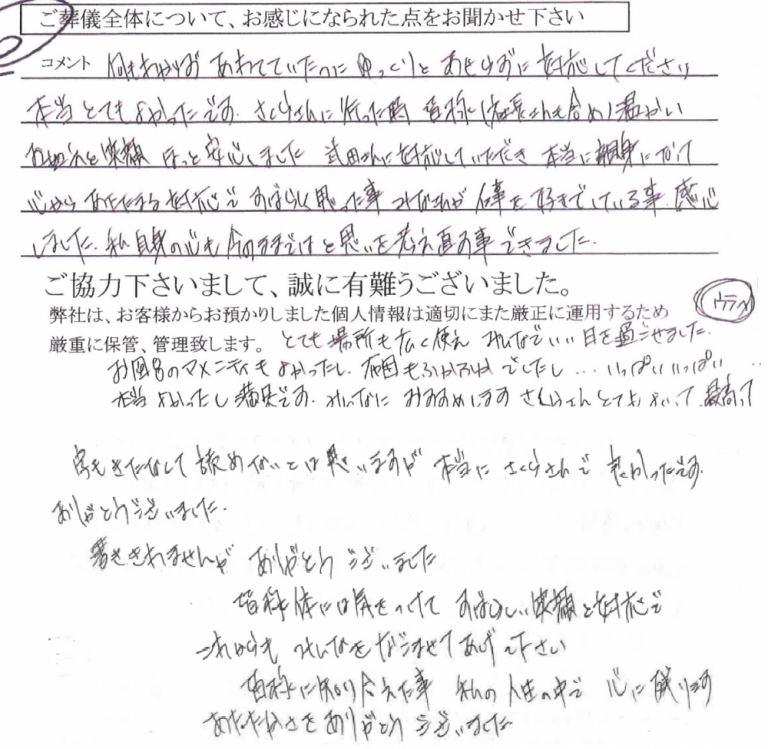 ご葬儀全体について、お感じになられた点をお聞かせ下さい
コメント 何もわからず あわてていたのに ゆっくりと あせらずに 対応してくださり
本当 とても よかったです。さくらさんに 行った時 皆様 (社長さんも含め) 温かい
笑顔 ほっと 安心しました 武田さんに対応していただき 本当に親身になって
心から あたたまる 対応で すばらしく思った事 みなさんが 仕事を 好きでしている事 感心
しました。私自身の心も 今のままではと 思いを考え直す事 できました。
ご協力下さいまして、誠に有難うございました。
弊社は、お客様からお預かりしました個人情報は適切にまた厳正に運用するため
ウラへ
厳重に保管、管理致します。とても 場所も 広く使え みんなで いい 日を過ごせました。
お風呂のアメニティも よかったし、布団も ふかふか でしたし... いっぱい いっぱい
本当 よかったし 満足です。みんなに おすすめします さくらさん とても よいって 最高って
字もきたなくて 読めないとは思いますが 本当に さくらさんで 良かったです。
ありがとうございました。
書ききれませんが ありがとうございました
皆様 体には気をつけて すばらしい 笑顔と対応で
これからも みんなを 下さい
皆様に知り合えた事 私の 人生の中で 心に残ります
あたたかさを ありがとうございました